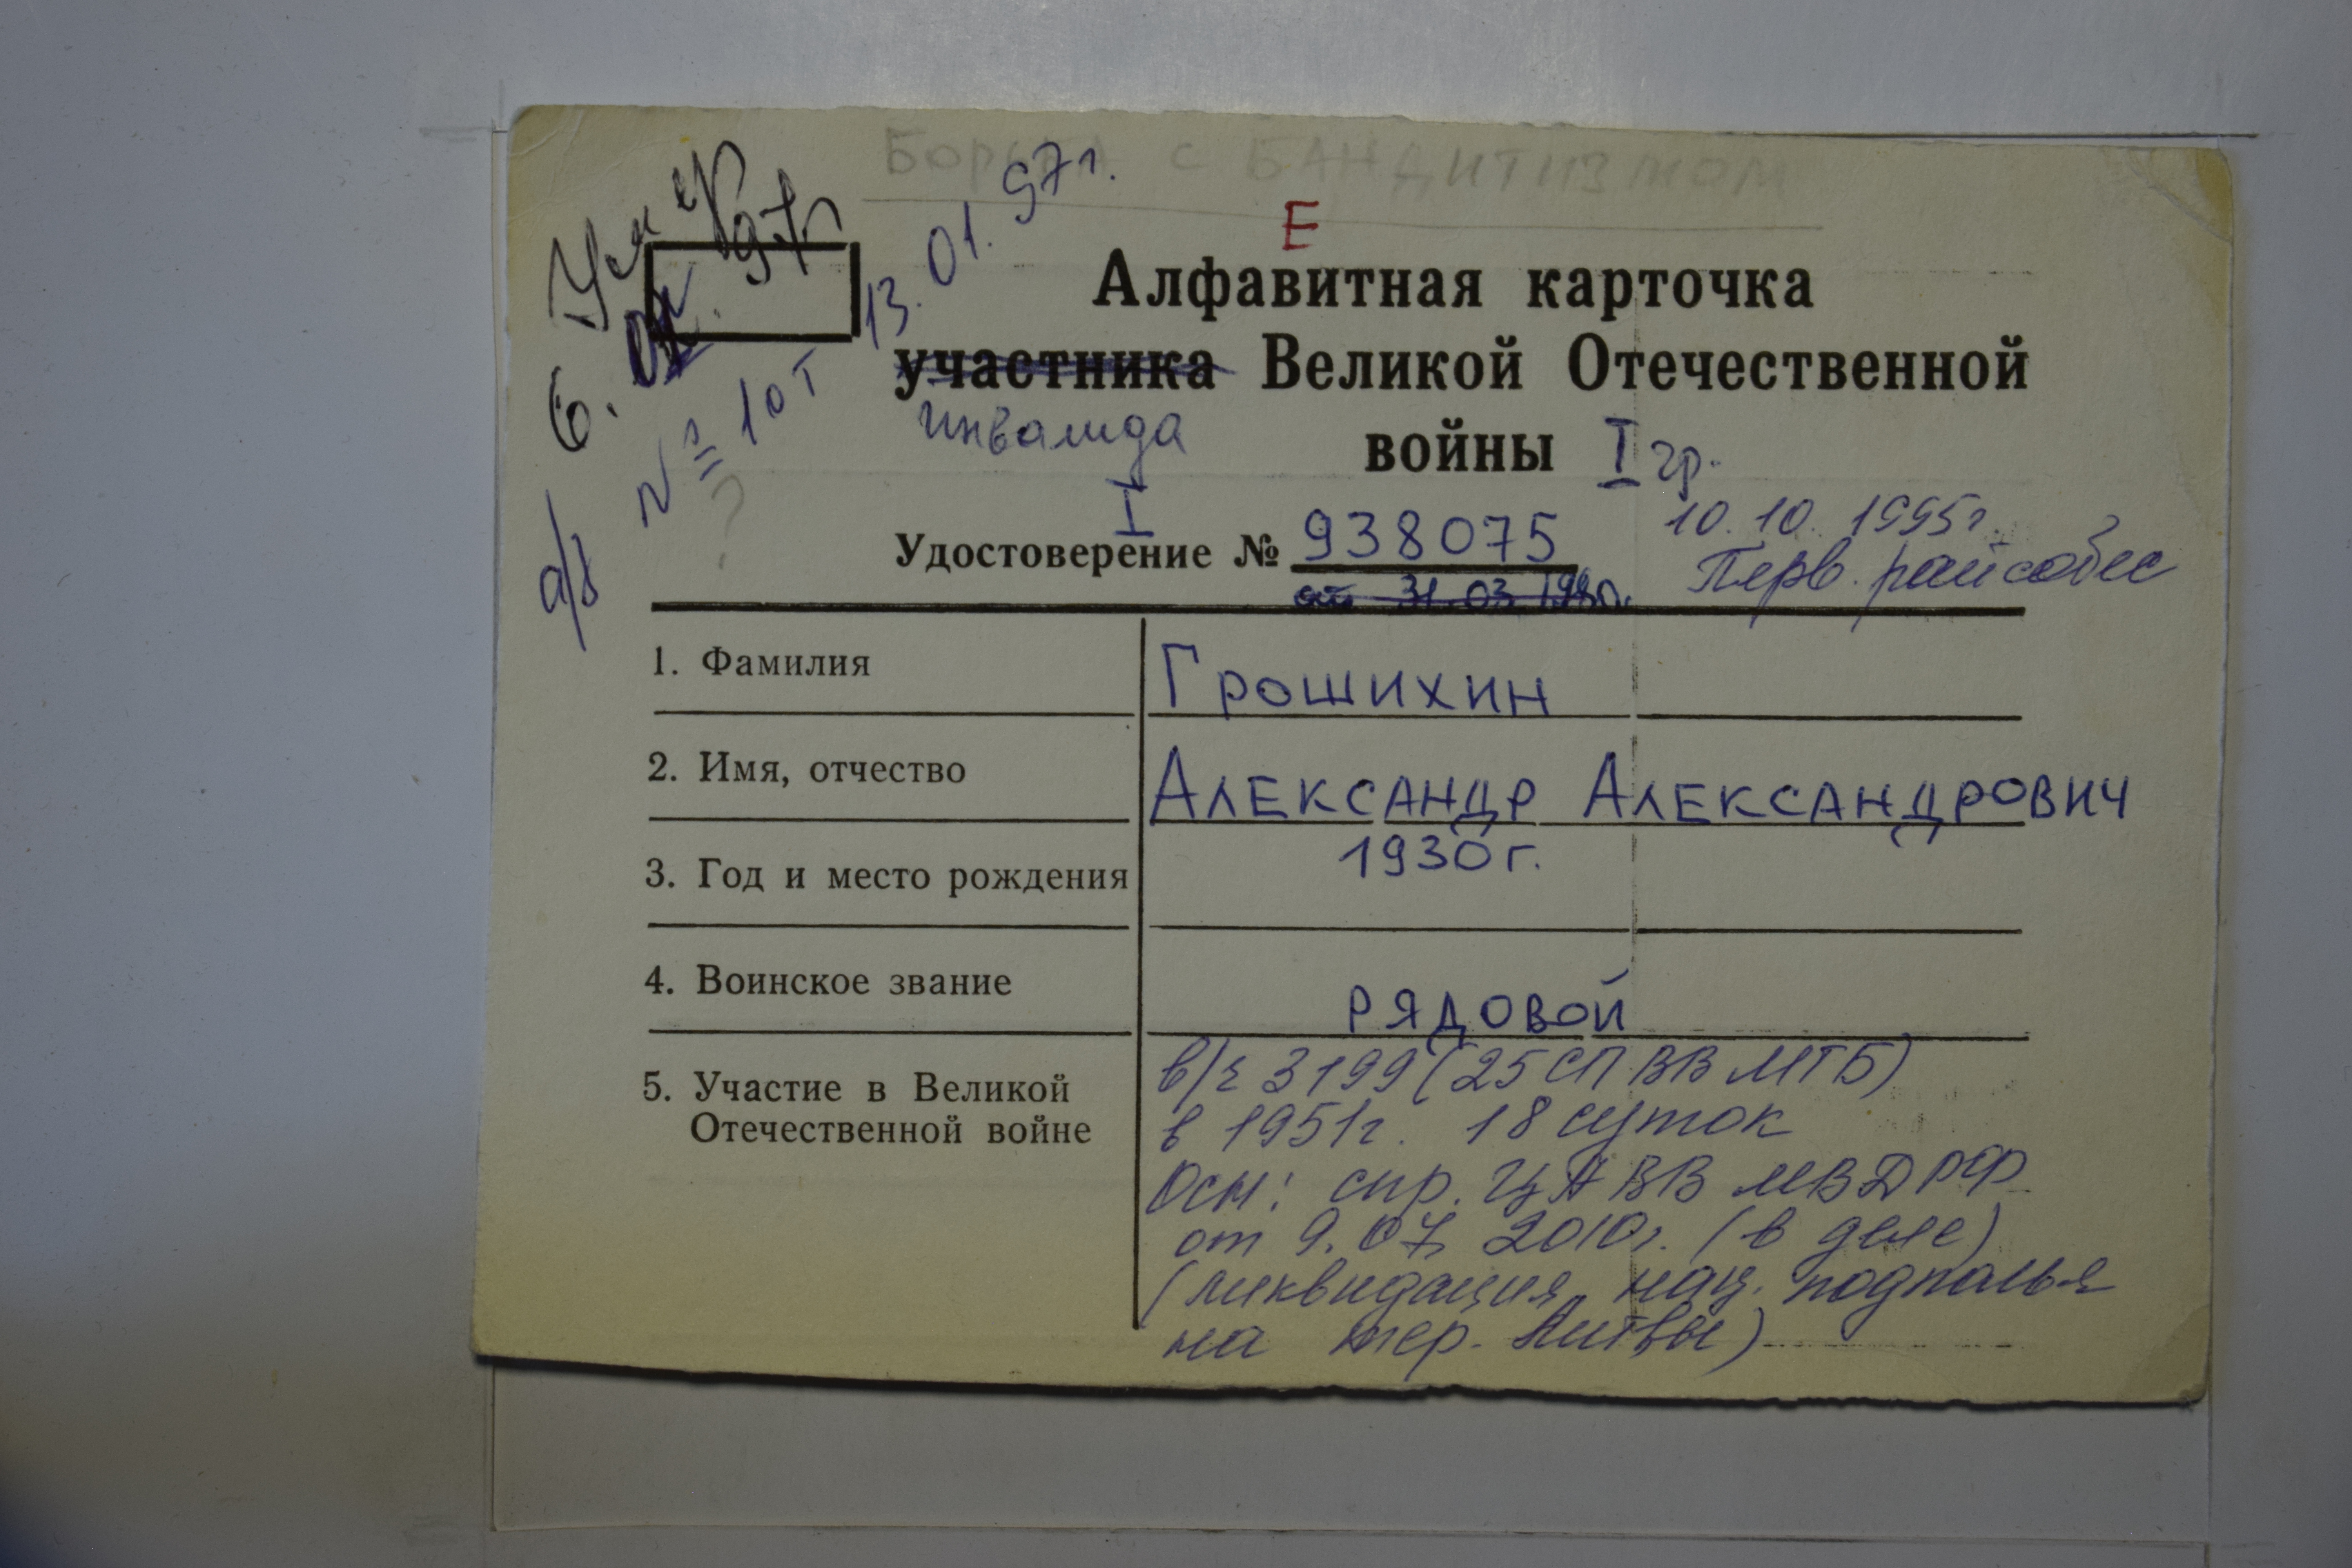 Борьба с бандитизмом
Умер
6. 01. 97г
13. 01. 97г.
а/я № 10т
?
Е
Алфавитная карточка
участника Великой Отечественной
инвалида войны I гр.
I
Удостоверение № 938075
10.10.1995г.
Перв. райсобес
от 31.03.
1. Фамилия Грошихин
2. Имя, отчество Александр Александрович
3. Год и место рождения 1930г.
4. Воинское звание рядовой
5. Участие в Великой
Отечественной войне
в/ч 3199 (25 СП ВВ МГБ)
в 1951г. 18 суток
Осн: спр. ЦА ВВ МВД РФ
от 9.07. 2010г. (в деле)
(ликвидация нац. подполья
на тер. Литвы)